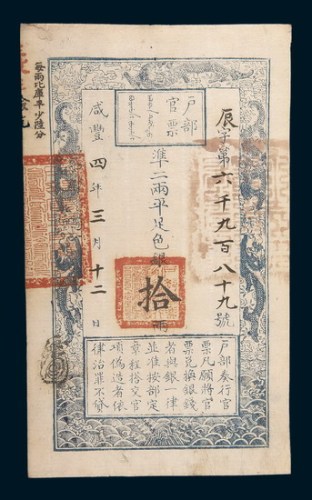 戶部
官票
辰字第六千九百八十九號
準二兩平足色銀拾兩
咸豐四年三月十二日
戶部奏行官
票凡願將官
票兌換銀錢
者與銀一律
並准按部定
章程搭交官
項偽造者依
律治罪不貸
每兩比庫平少陸分